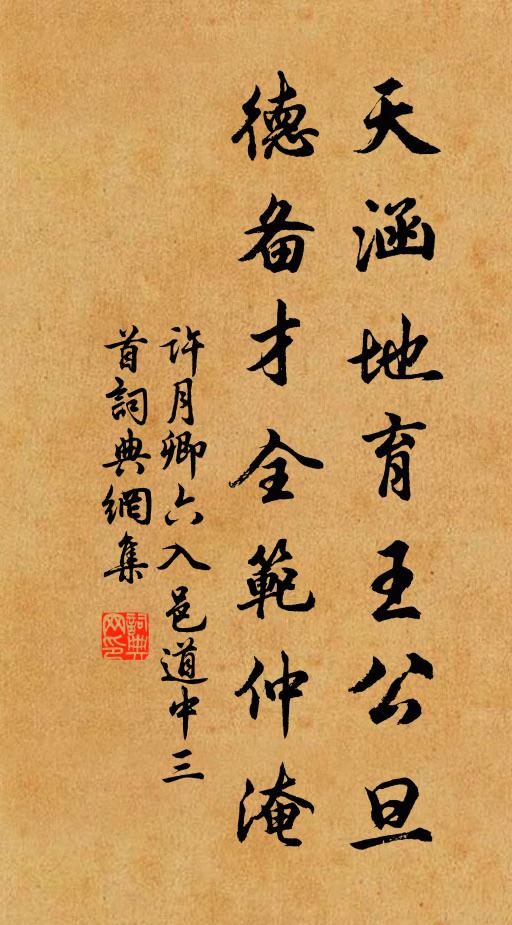 天涵地育王公旦
德备才全範仲淹
許月卿六入邑道中三
首詞典網集
詞典网印